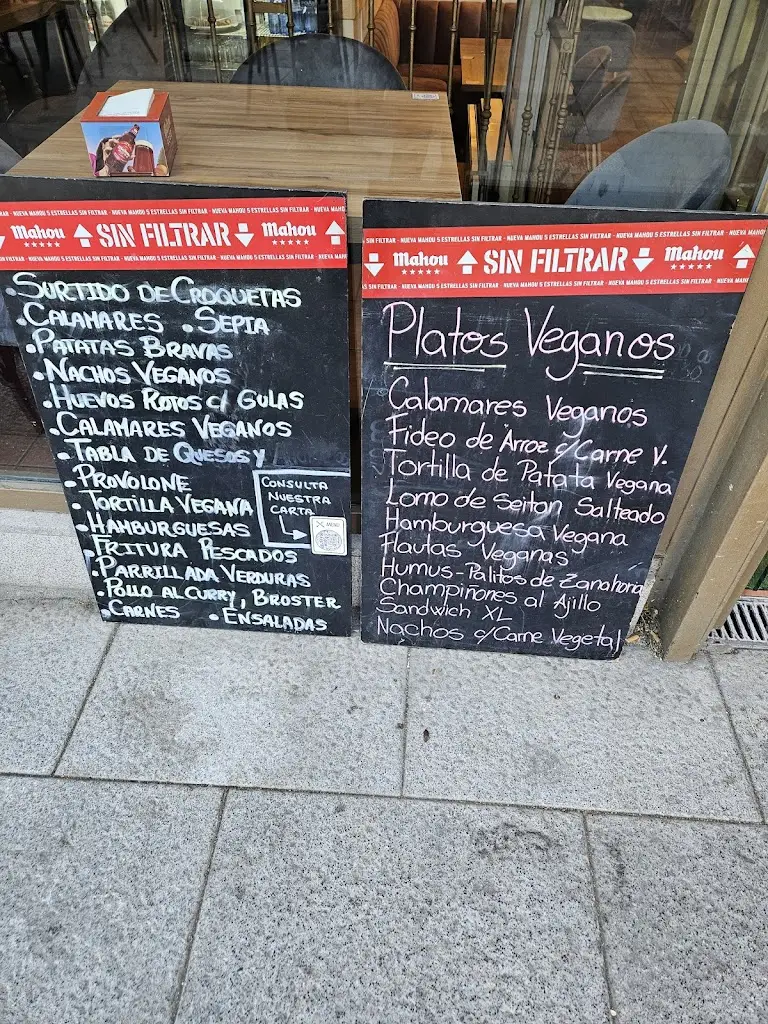 NUEVA MAHOU 5 ESTRELLAS SIN FILTRAR - NUEVA MAHOU 5 ESTRELLAS SIN FILTRAR - NUEVA MAHOU
Mahou SIN FILTRAR Mahou
NUEVA MAHOU 5 ESTRELLAS SIN FILTRAR - NUEVA MAHOU 5 ESTRELLAS SIN FILTRAR
•SURTIDO DE CROQUETAS
•CALAMARES •SEPIA
•PATATAS BRAVAS
•NACHOS VEGANOS
•HUEVOS ROTOS c/ GULAS
•CALAMARES VEGANOS
•TABLA DE QUESOS Y
•PROVOLONE
•TORTILLA VEGANA
•HAMBURGUESAS
•FRITURA PESCADOS
•PARRILLADA VERDURAS
•POLLO AL CURRY, BROSTER
•CARNES •ENSALADAS
CONSULTA
NUESTRA
CARTA
MENÚ
SIN FILTRAR - NUEVA MAHOU 5 ESTRELLAS SIN FILTRAR - NUEVA MAHOU 5 ESTRELLAS SIN FILTRAR - NUEVA MAHOU
Mahou SIN FILTRAR Mahou
SIN FILTRAR - NUEVA MAHOU 5 ESTRELLAS SIN FILTRAR - NUEVA MAHOU 5 ESTRELLAS SIN FILTRAR
Platos Veganos
Calamares Veganos
Fideo de Arroz c/Carne V.
Tortilla de Patata Vegana
Lomo de Seitan Salteado
Hamburguesa Vegana
Flautas Veganas
Humus-Palitos de Zanahoria
Champiñones al Ajillo
Sandwich XL
Nachos c/Carne Vegetal